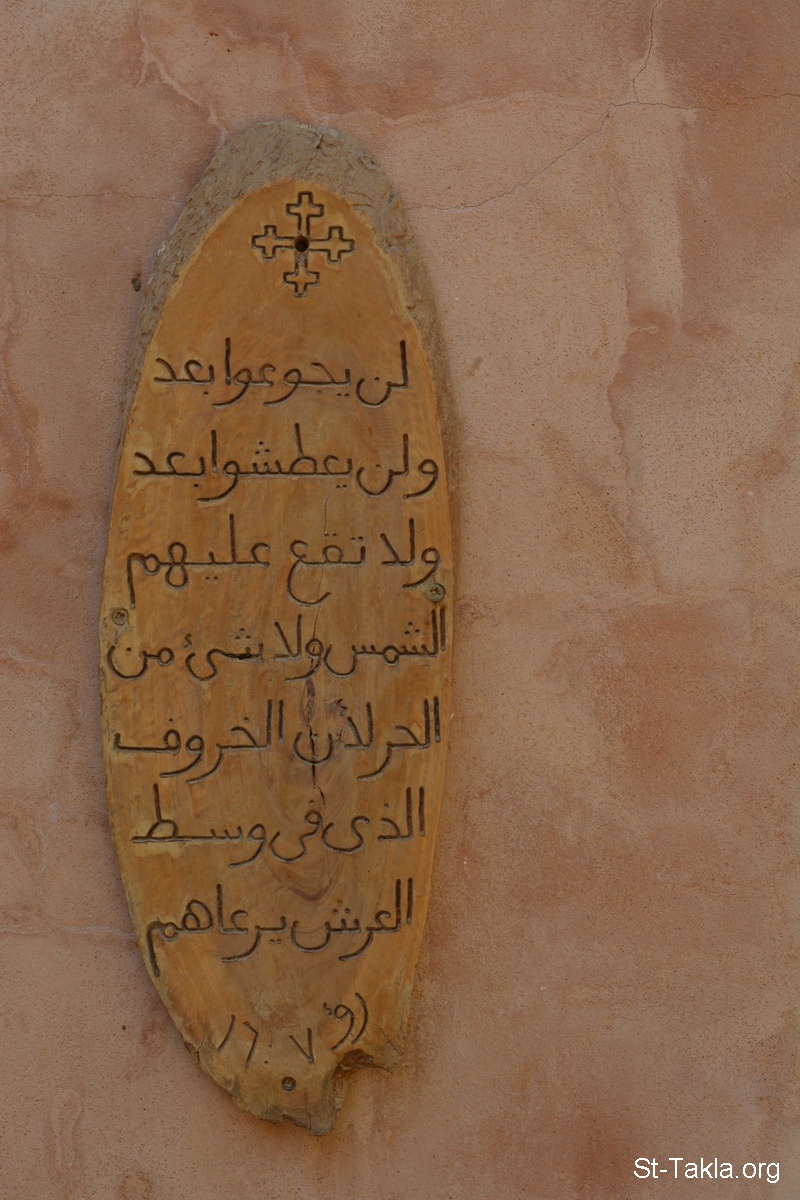 لن يجوعوا بعد
ولن يعطشوا بعد
ولا تقع عليهم
الشمس ولا شئ من
الحر لأن الخروف
الذى فى وسط
العرش يرعاهم
رؤ ٧ : ١٦
St-Takla.org